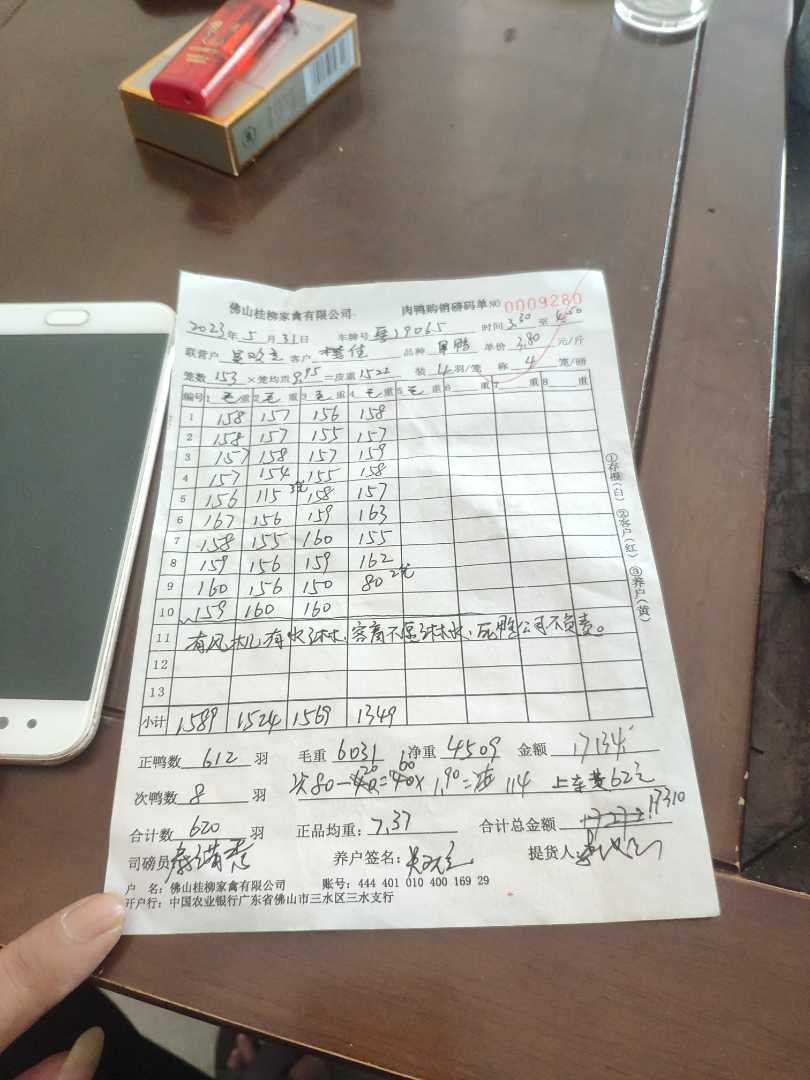 佛山桂柳家禽有限公司 肉鸭购销磅码单 NO 0009280
2023年5月31日 车牌号 粤J9065 时间 3.30 至 4.50
联营户 客户 品种 单价 3.80 元/斤
笼数 153 ×笼均重 9.95 =皮重 1522 装 4 羽/笼 称 4 笼/磅
编号 1 毛 重 2 毛 重 3 毛 重 4 毛 重 5 毛 重 6 重 7 重 8 重
1 158 157 156 158
2 158 157 155 157
3 157 158 157 159
4 157 154 155 158
5 156 115 3笼 158 157
6 167 156 159 163
7 158 155 160 155
8 159 156 159 162
9 160 156 150 80 2笼
10 159 160 160
11 有风机,有水淋,客商不愿淋水,死鸭公司不负责。
12
13
小计 1589 1524 1569 1349
正鸭数 612 羽 毛重 6031 净重 4509 金额 17134
次鸭数 8 羽 次80-20=60×1.90=114 上车费62元
合计数 620 羽 正品均重: 7.37 合计总金额 17310
司磅员 养户签名: 提货人:
户 名: 佛山桂柳家禽有限公司 账号: 444 401 010 400 169 29
开户行: 中国农业银行广东省佛山市三水区三水支行
①存根(白) ②客户(红) ③养户(黄)